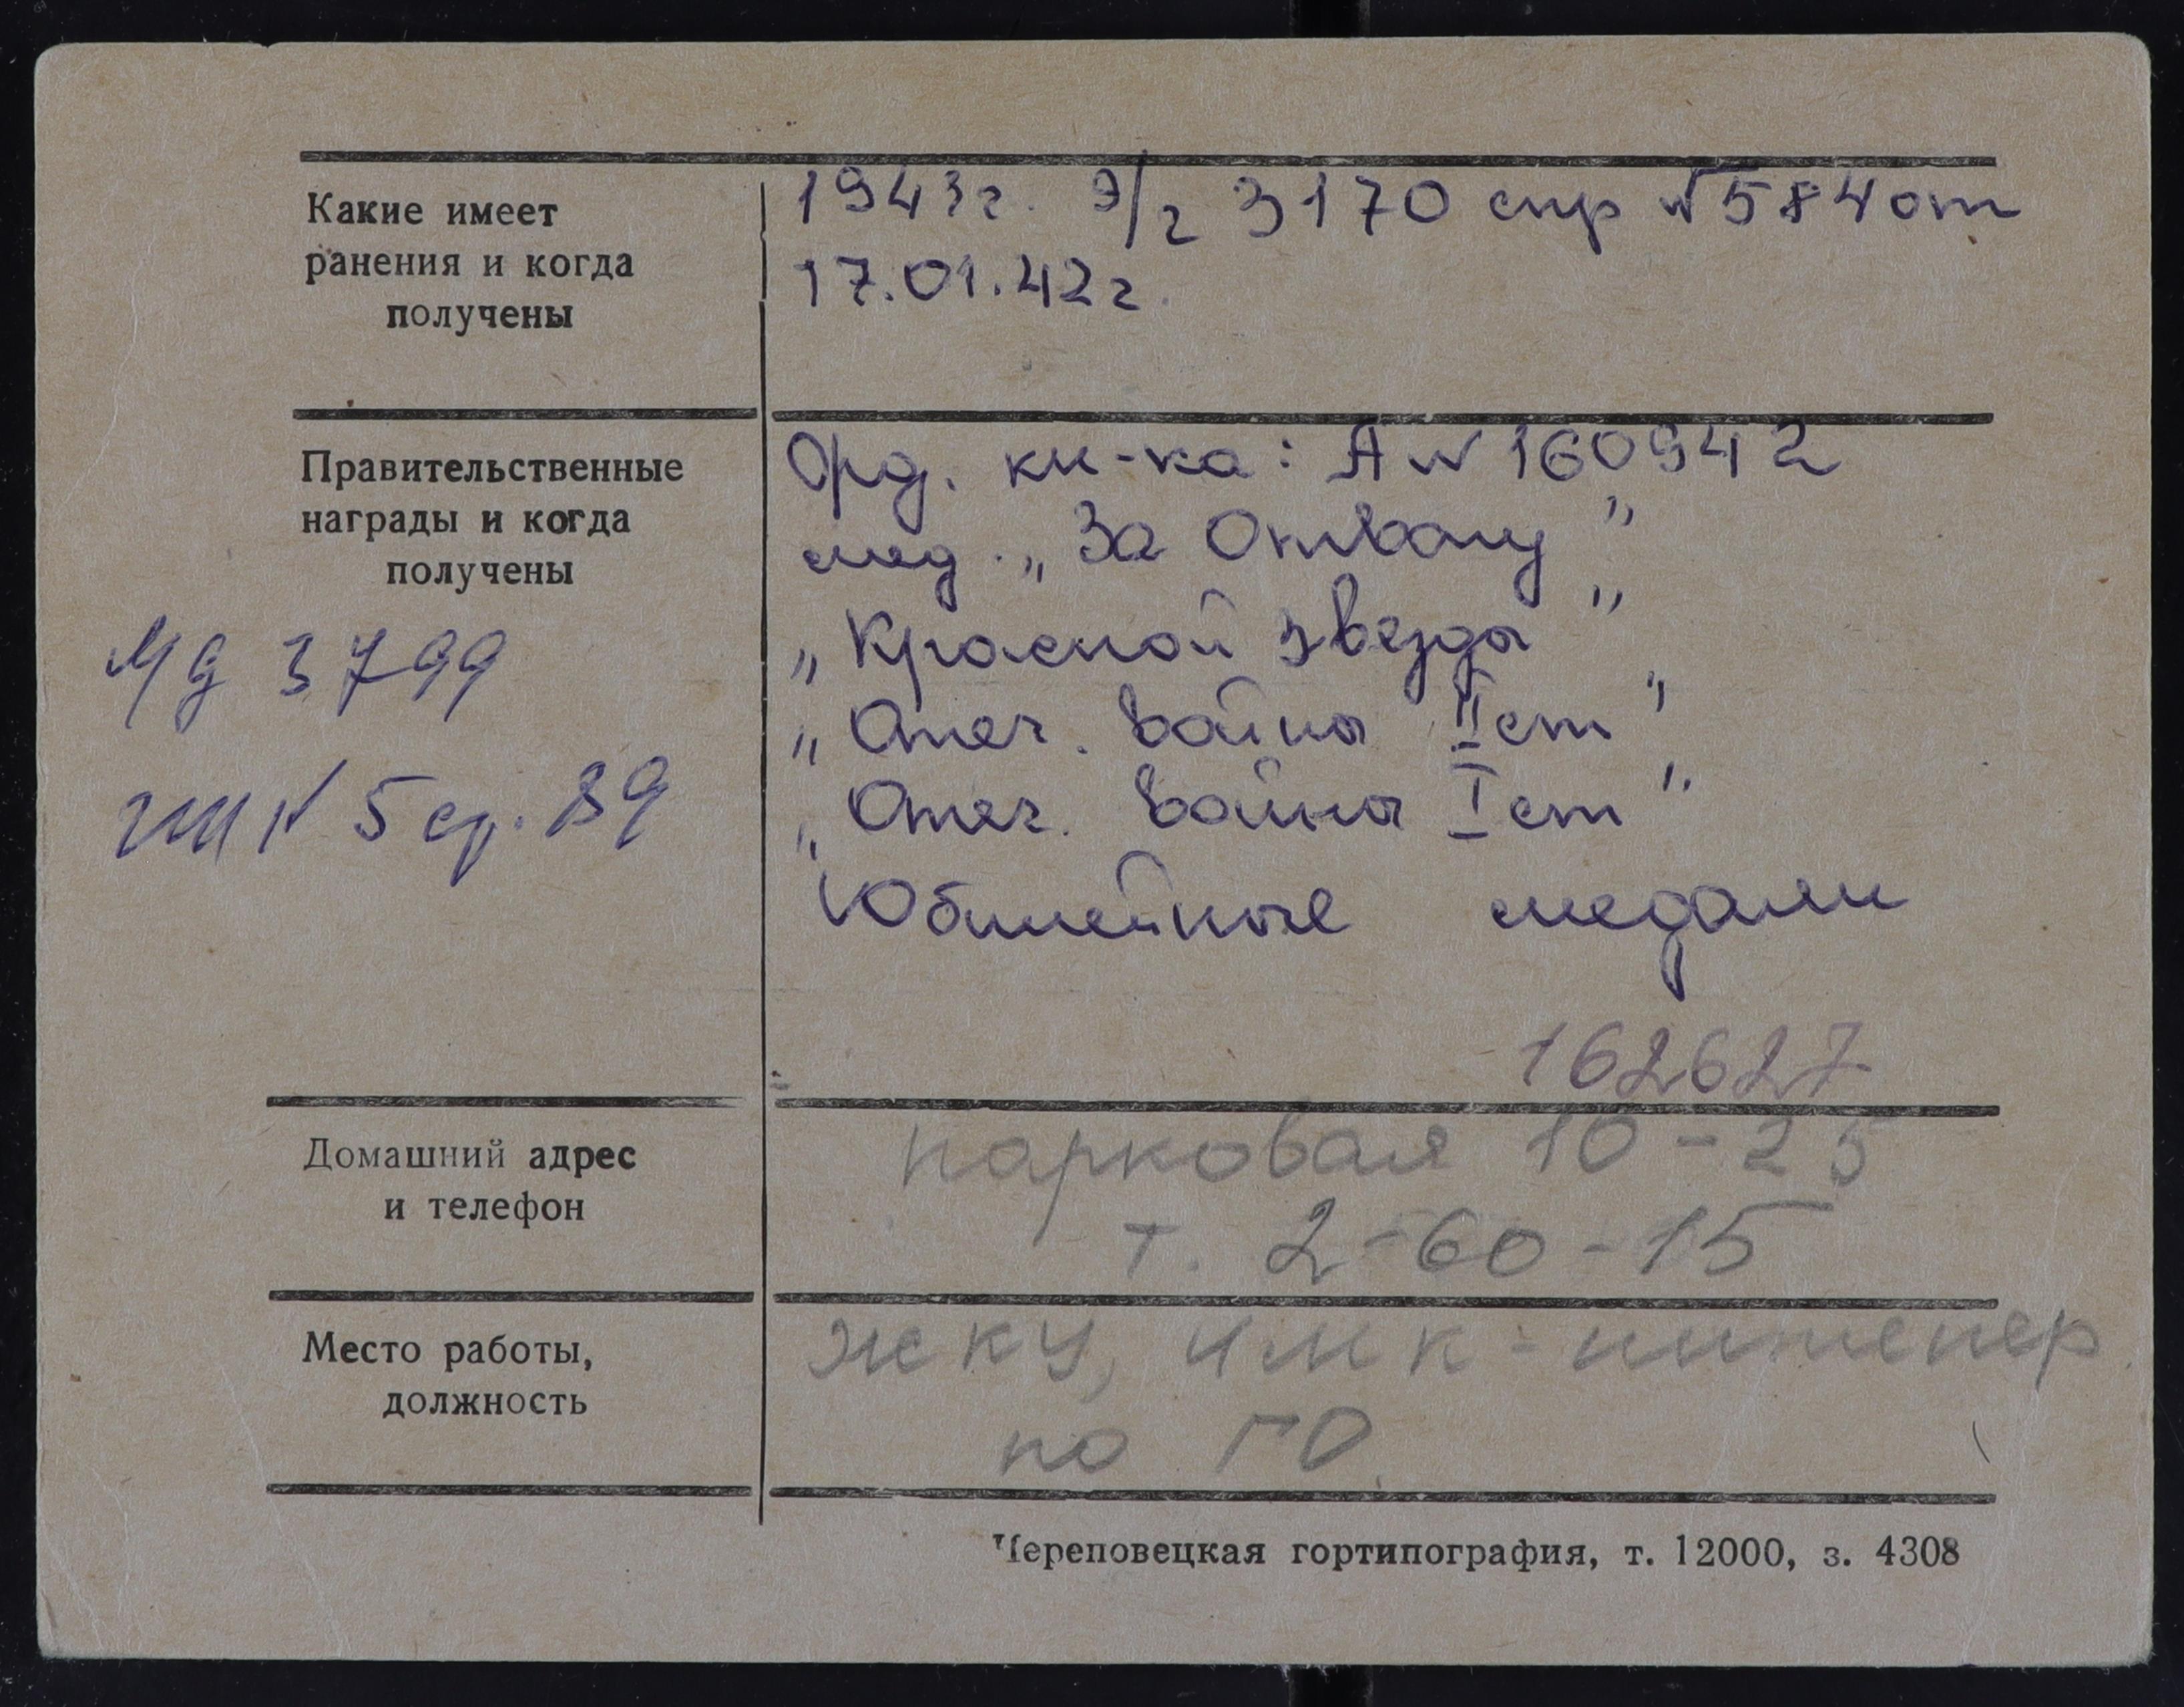 Какие имеет
ранения и когда
получены
1943г. э/г 3170 спр №584 от
17.01.42г.
Правительственные
награды и когда
получены
Орд. кн-ка: А № 160942
мед. „За Отвагу”
„Красной звезды”
„Отеч. войны II ст”
„Отеч. войны I ст”
Юбилейные медали
162627
МД 3799
№ 5 ср. 89
Домашний адрес
и телефон
парковая 10-25
т. 2-60-15
Место работы,
должность
ЖКУ, ЧМК - инженер
по ГО.
Череповецкая гортипография, т. 12000, з. 4308